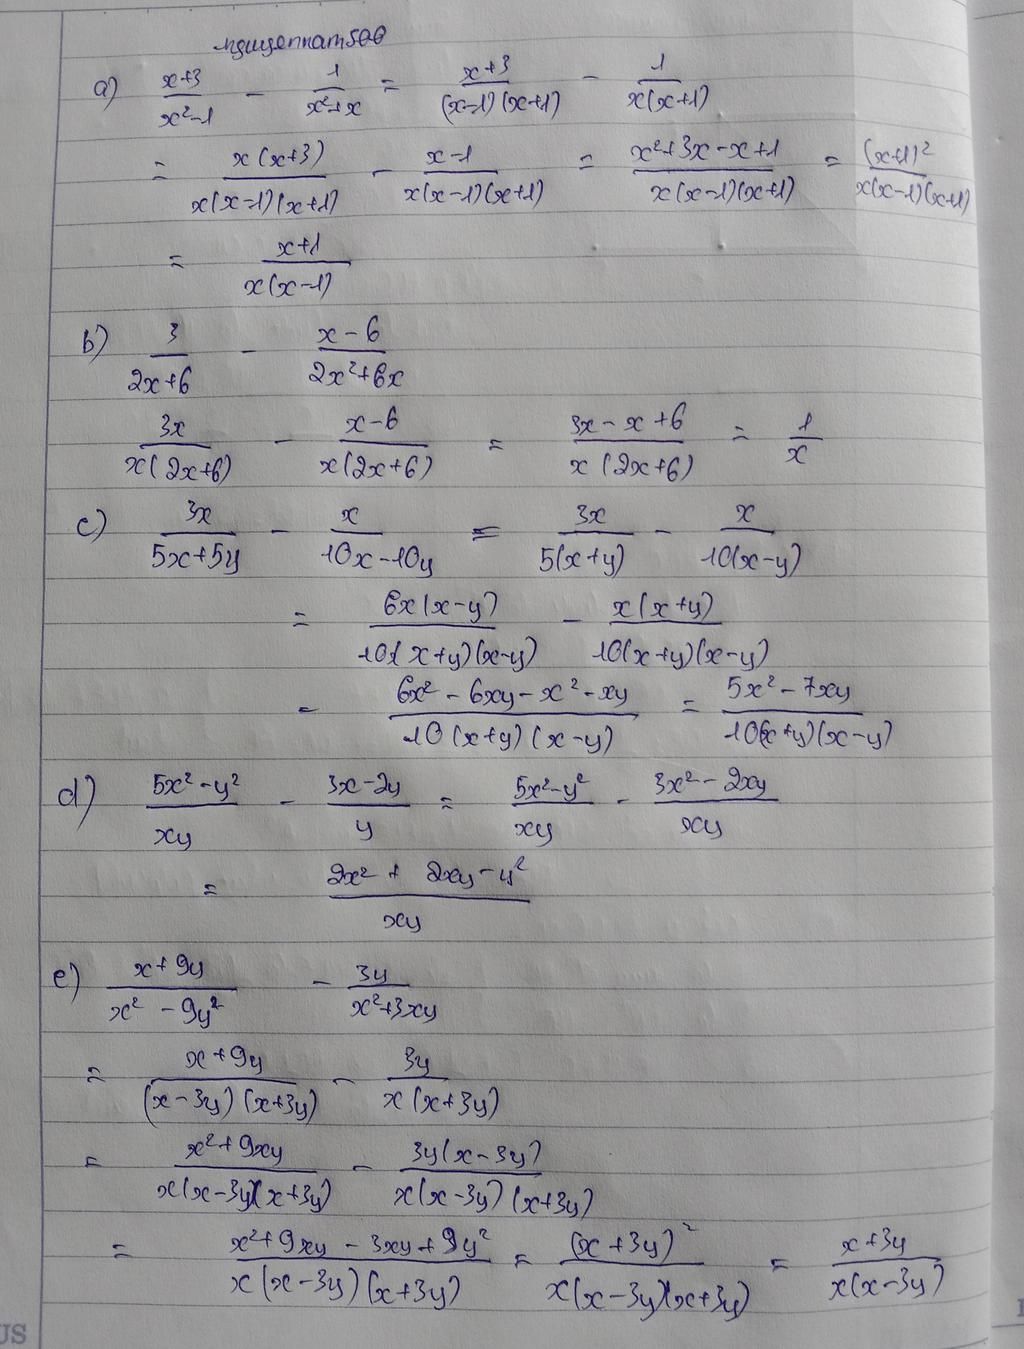 nguyennam580
a) \frac{x+3}{x^2-1} - \frac{1}{x^2+x} = \frac{x+3}{(x-1)(x+1)} - \frac{1}{x(x+1)}
= \frac{x(x+3)}{x(x-1)(x+1)} - \frac{x-1}{x(x-1)(x+1)} = \frac{x^2+3x-x+1}{x(x-1)(x+1)} = \frac{(x+1)^2}{x(x-1)(x+1)}
= \frac{x+1}{x(x-1)}
b) \frac{3}{2x+6} - \frac{x-6}{2x^2+6x}
\frac{3x}{x(2x+6)} - \frac{x-6}{x(2x+6)} = \frac{3x-x+6}{x(2x+6)} = \frac{1}{x}
c) \frac{3x}{5x+5y} - \frac{x}{10x-10y} = \frac{3x}{5(x+y)} - \frac{x}{10(x-y)}
= \frac{6x(x-y)}{10(x+y)(x-y)} - \frac{x(x+y)}{10(x+y)(x-y)}
= \frac{6x^2-6xy-x^2-xy}{10(x+y)(x-y)} = \frac{5x^2-7xy}{10(x+y)(x-y)}
d) \frac{5x^2-y^2}{xy} - \frac{3x-2y}{y} = \frac{5x^2-y^2}{xy} - \frac{3x^2-2xy}{xy}
= \frac{2x^2+2xy-y^2}{xy}
e) \frac{x+9y}{x^2-9y^2} - \frac{3y}{x^2+3xy}
= \frac{x+9y}{(x-3y)(x+3y)} - \frac{3y}{x(x+3y)}
= \frac{x^2+9xy}{x(x-3y)(x+3y)} - \frac{3y(x-3y)}{x(x-3y)(x+3y)}
= \frac{x^2+9xy-3xy+9y^2}{x(x-3y)(x+3y)} = \frac{(x+3y)^2}{x(x-3y)(x+3y)} = \frac{x+3y}{x(x-3y)}